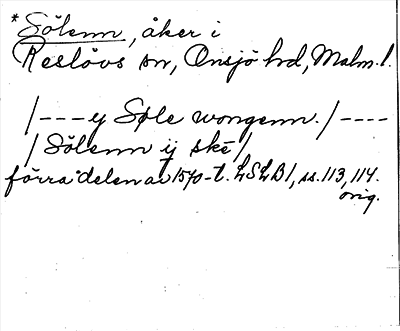 *Sölenn, åker i
Reslövs sn, Onsjö hd, Malm. l.
/---- ej Søle wongenn. /----
/ Sölenn ij skē /
förra delen av 1570-t. LSLB1, ss. 113, 114.
orig.